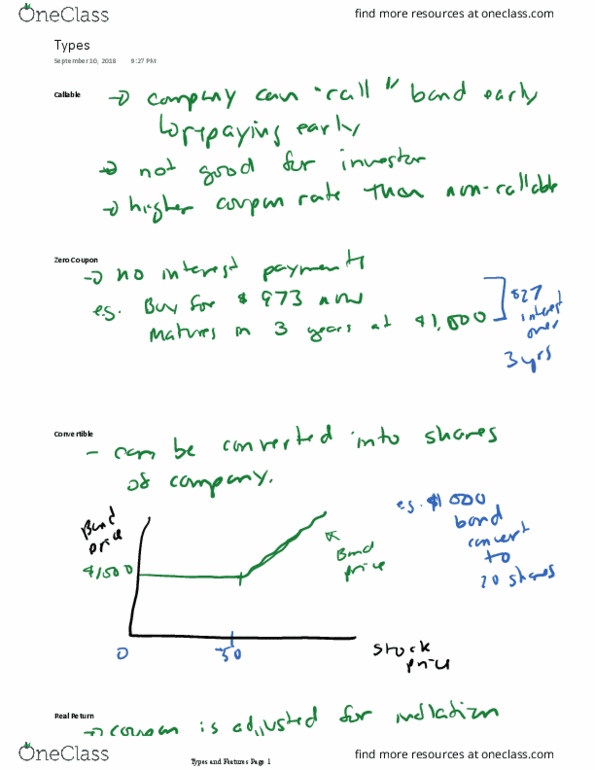 OneClass
find more resources at oneclass.com
Types
September 10, 2018 9:27 PM
Callable
→ company can "call" bond early
↳ repaying early
→ not good for investor
→ higher coupon rate than non-callable
Zero Coupon
→ no interest payments
eg. Buy for $973 now
Matures in 3 years at $1,000
$27
interest
over
3 yrs
Convertible
- can be converted into shares
of company.
Bond
price
$1,000
0
50
Bond
price
stock
price
eg. $1000
bond
convert
to
20 shares
Real Return
→ coupon is adjusted for inflation
OneClass
Types and Features Page 1
find more resources at oneclass.com